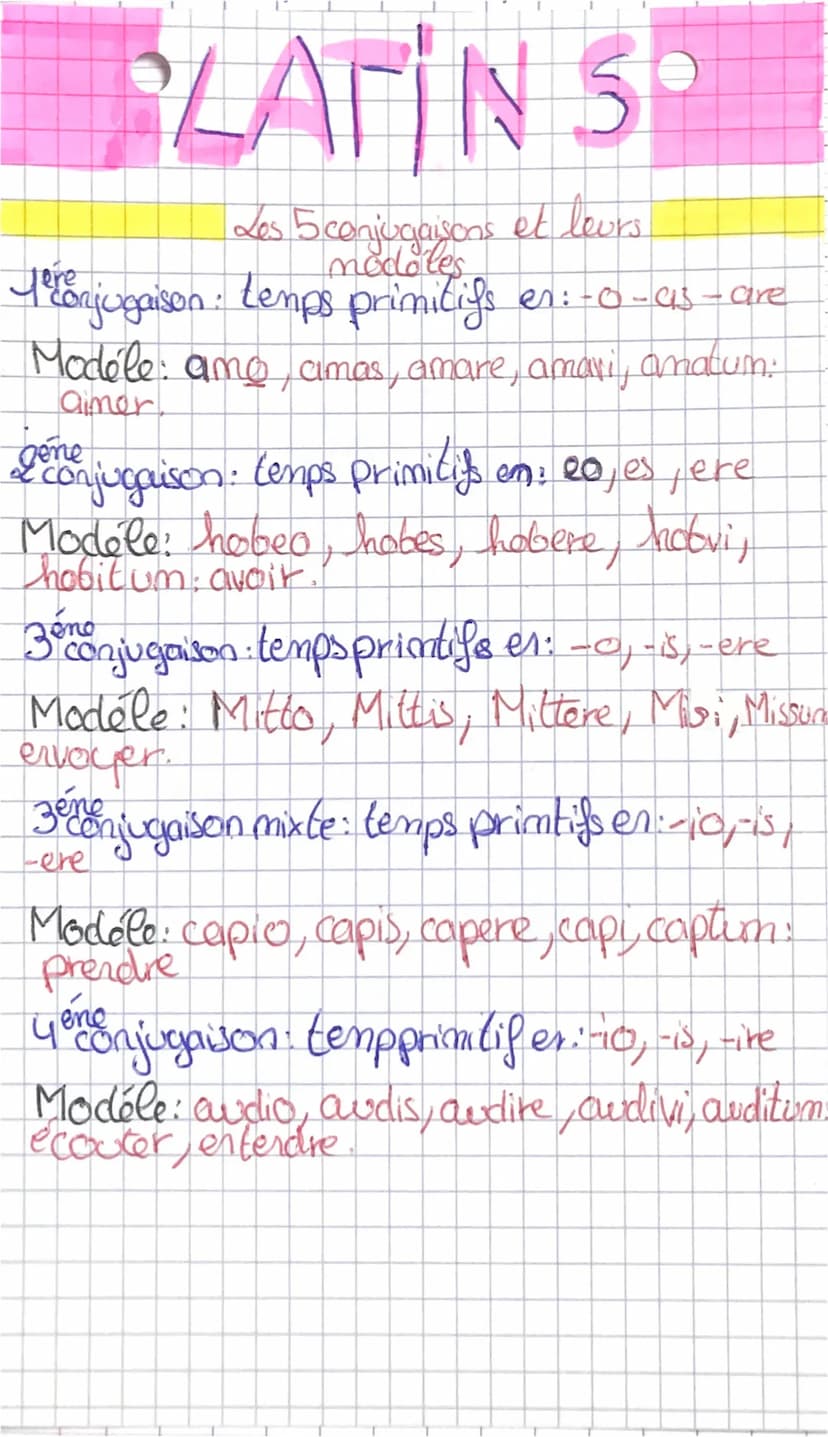 LATIN S
Les 5 conjugaisons et leurs
modèles
1ère conjugaison : temps primitifs en : -o -as -are
Modéle : amo, amas, amare, amavi, amatum :
aimer.
2éme conjugaison : temps primitifs en : eo, es, ere
Modéle : habeo, habes, habere, habui,
habitum : avoir.
3éme conjugaison : temps primtifs en : -o, -is, -ere
Modéle : Mitto, Mittis, Mittere, Misi, Missum
envoyer.
3éme conjugaison mixte : temps primtifs en : -io, -is,
-ere
Modéle : capio, capis, capere, capi, captum :
prendre
4éme conjugaison : temp primitif en : -io, -is, -ire
Modéle : audio, audis, audire, audivi, auditum :
écouter, entendre.